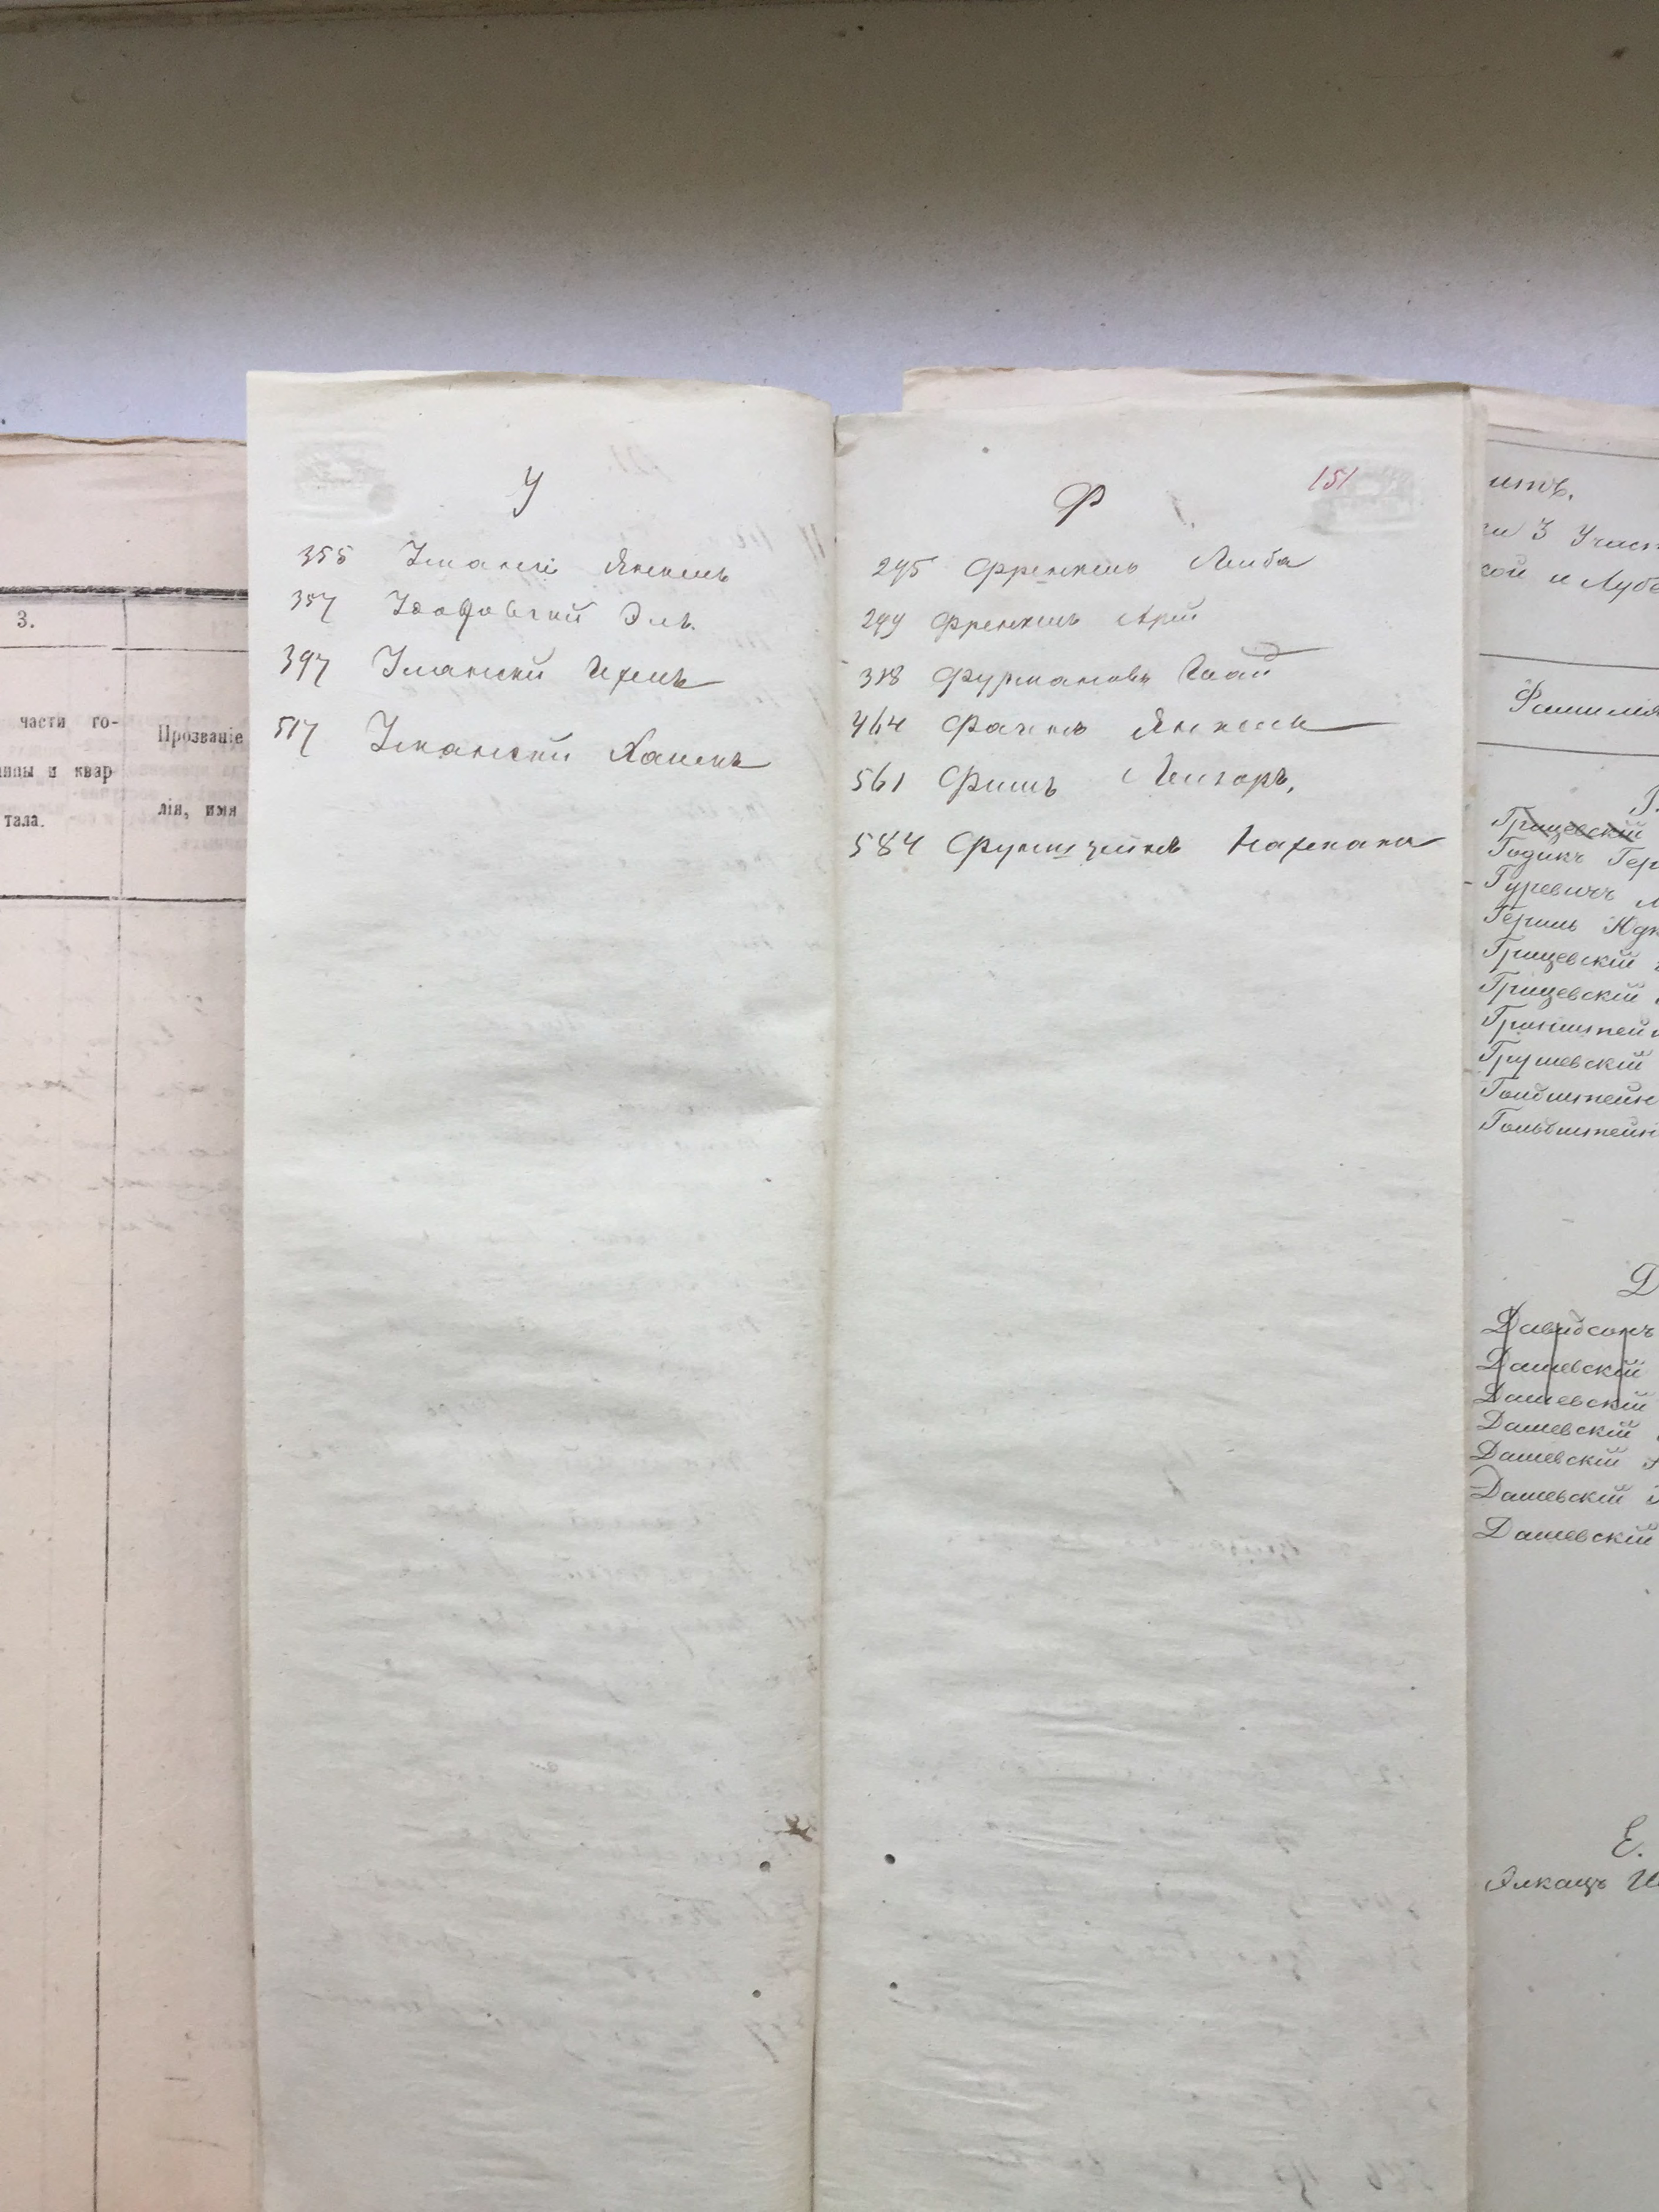 3.
части го-
ины и квар
тала.
Прозваніе
лія, имя
У
355 Уманскі Янкель
357 Удовскій Эль.
397 Уманскій Ицекъ
517 Уманскій Хаимъ
151
Ф
295 Френкель Лейба
299 Френкель Арій
318 Фурмановъ
464 Янкель
561 Фишъ Лейзоръ,
584 Нахмана
3 Участ
кой и Лубе
Фамилія
Г.
Грицевскій
Годикъ Гер
Гуревичъ
Гершъ Юдк
Грицевскій
Грицевскій
Гринштейн
Грушевскій
Гольдштейн
Гольдштейн
Д
Давидсонъ
Дашевскій
Дашевскій
Дашевскій
Дашевскій
Дашевскій
Дашевскій
Е.
Элкацъ